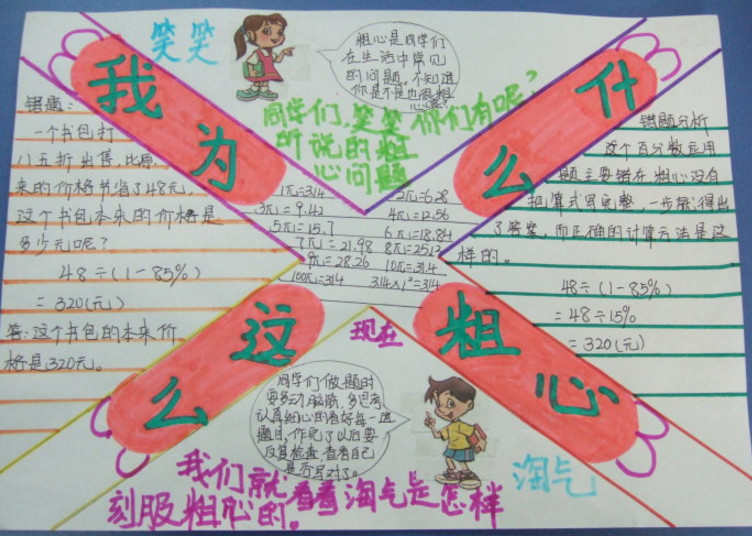 我为什么这么粗心
笑笑
粗心是同学们
在生活中常见
的问题。不知道
你是不是也很粗
心呢?
同学们,笑笑
所说的粗
心问题
你们有呢?
错题:
一个书包打
八五折出售,比原
来的价格节省了48元,
这个书包本来的价格是
多少元呢?
48÷(1-85%)
=320(元)
答:这个书包的本来价
格是320元。
1π=3.14 2π=6.28
3π=9.42 4π=12.56
5π=15.7 6π=18.84
7π=21.98 8π=25.12
9π=28.26 10π=31.4
100π=314 3.14×1²=3.14
错题分析
这个百分数应用
题主要错在粗心没有
把算式写完整,一步就得出
了答案,而正确的计算方法是这
样的。
48÷(1-85%)
=48÷15%
=320(元)
现在
同学们做题时
要多动脑筋,多思考,
认真细心的看好每一道
题目,做完了以后要
反复检查,看看自己
是否写对了。
淘气
我们就看看淘气是怎样
刻服粗心的。